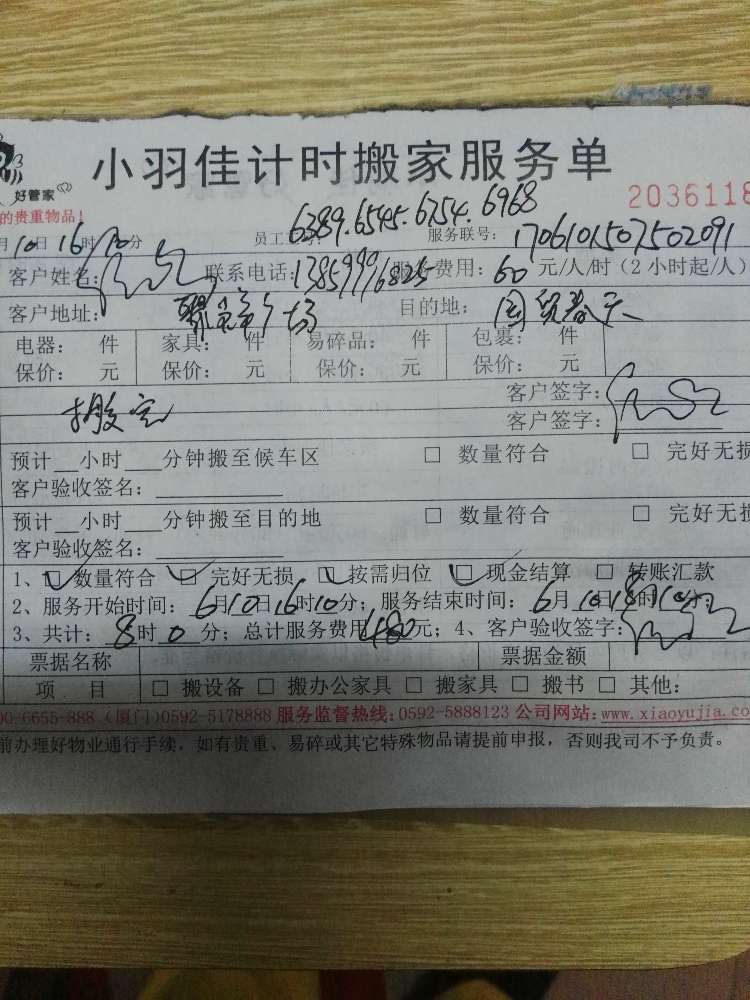 小羽佳计时搬家服务单
好管家
2036118
的贵重物品!
月10日16时10分 员工 号: 6389.6545.6754.6968 服务联号: 1706101507502091
客户姓名: 联系电话: 服务费用: 60 元/人/时(2小时起/人)
客户地址: 广场 目的地: 国贸春天
电器: 件 家具: 件 易碎品: 件 包裹: 件
保价: 元 保价: 元 保价: 元 保价: 元
客户签字:
搬完 客户签字:
预计__小时___分钟搬至候车区 □ 数量符合 □ 完好无损
客户验收签名:
预计__小时___分钟搬至目的地 □ 数量符合 □ 完好无损
客户验收签名:
1、☑数量符合 ☑ 完好无损 ☑按需归位 ☑现金结算 □ 转账汇款
2、服务开始时间: 6月10日16时10分; 服务结束时间: 6月10日18时10分;
3、共计: 8时0分; 总计服务费用480元; 4、客户验收签字:
票据名称 票据金额
项 目 □ 搬设备 □ 搬办公家具 □ 搬家具 □ 搬书 □ 其他:
00-6655-888 (厦门)0592-5178888 服务监督热线:0592-5888123 公司网站:www.xiaoyujia.co
前办理好物业通行手续,如有贵重、易碎或其它特殊物品请提前申报,否则我司不予负责。